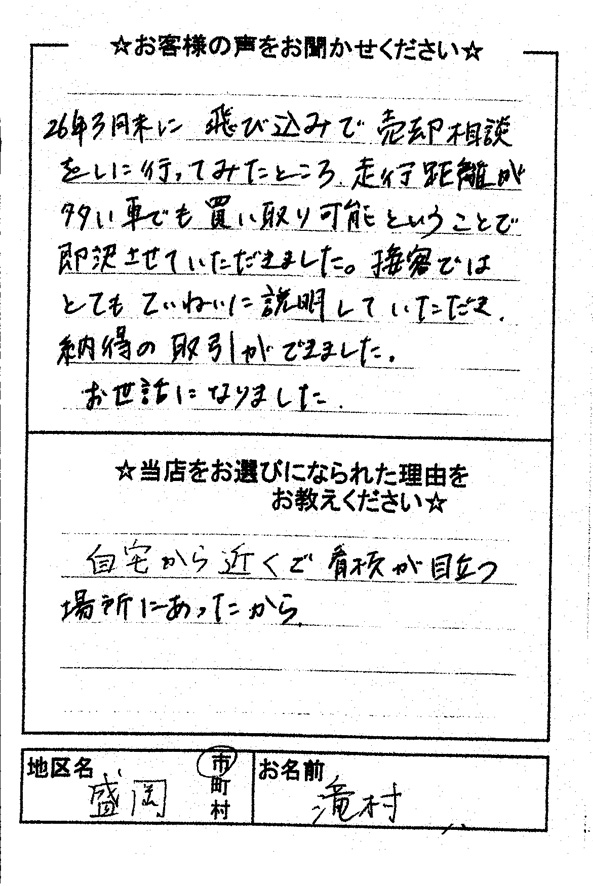 ☆お客様の声をお聞かせください☆
26年3月末に 飛び込みで 売却相談
をしに行ってみたところ、走行距離が
多い車でも買い取り可能ということで
即決させていただきました。接客では
とてもていねいに説明していただき、
納得の取引ができました。
お世話になりました.
☆当店をお選びになられた理由を
お教えください☆
自宅から近くで 看板が目立つ
場所にあったから.
地区名
盛岡
市
町
村
お名前
滝村